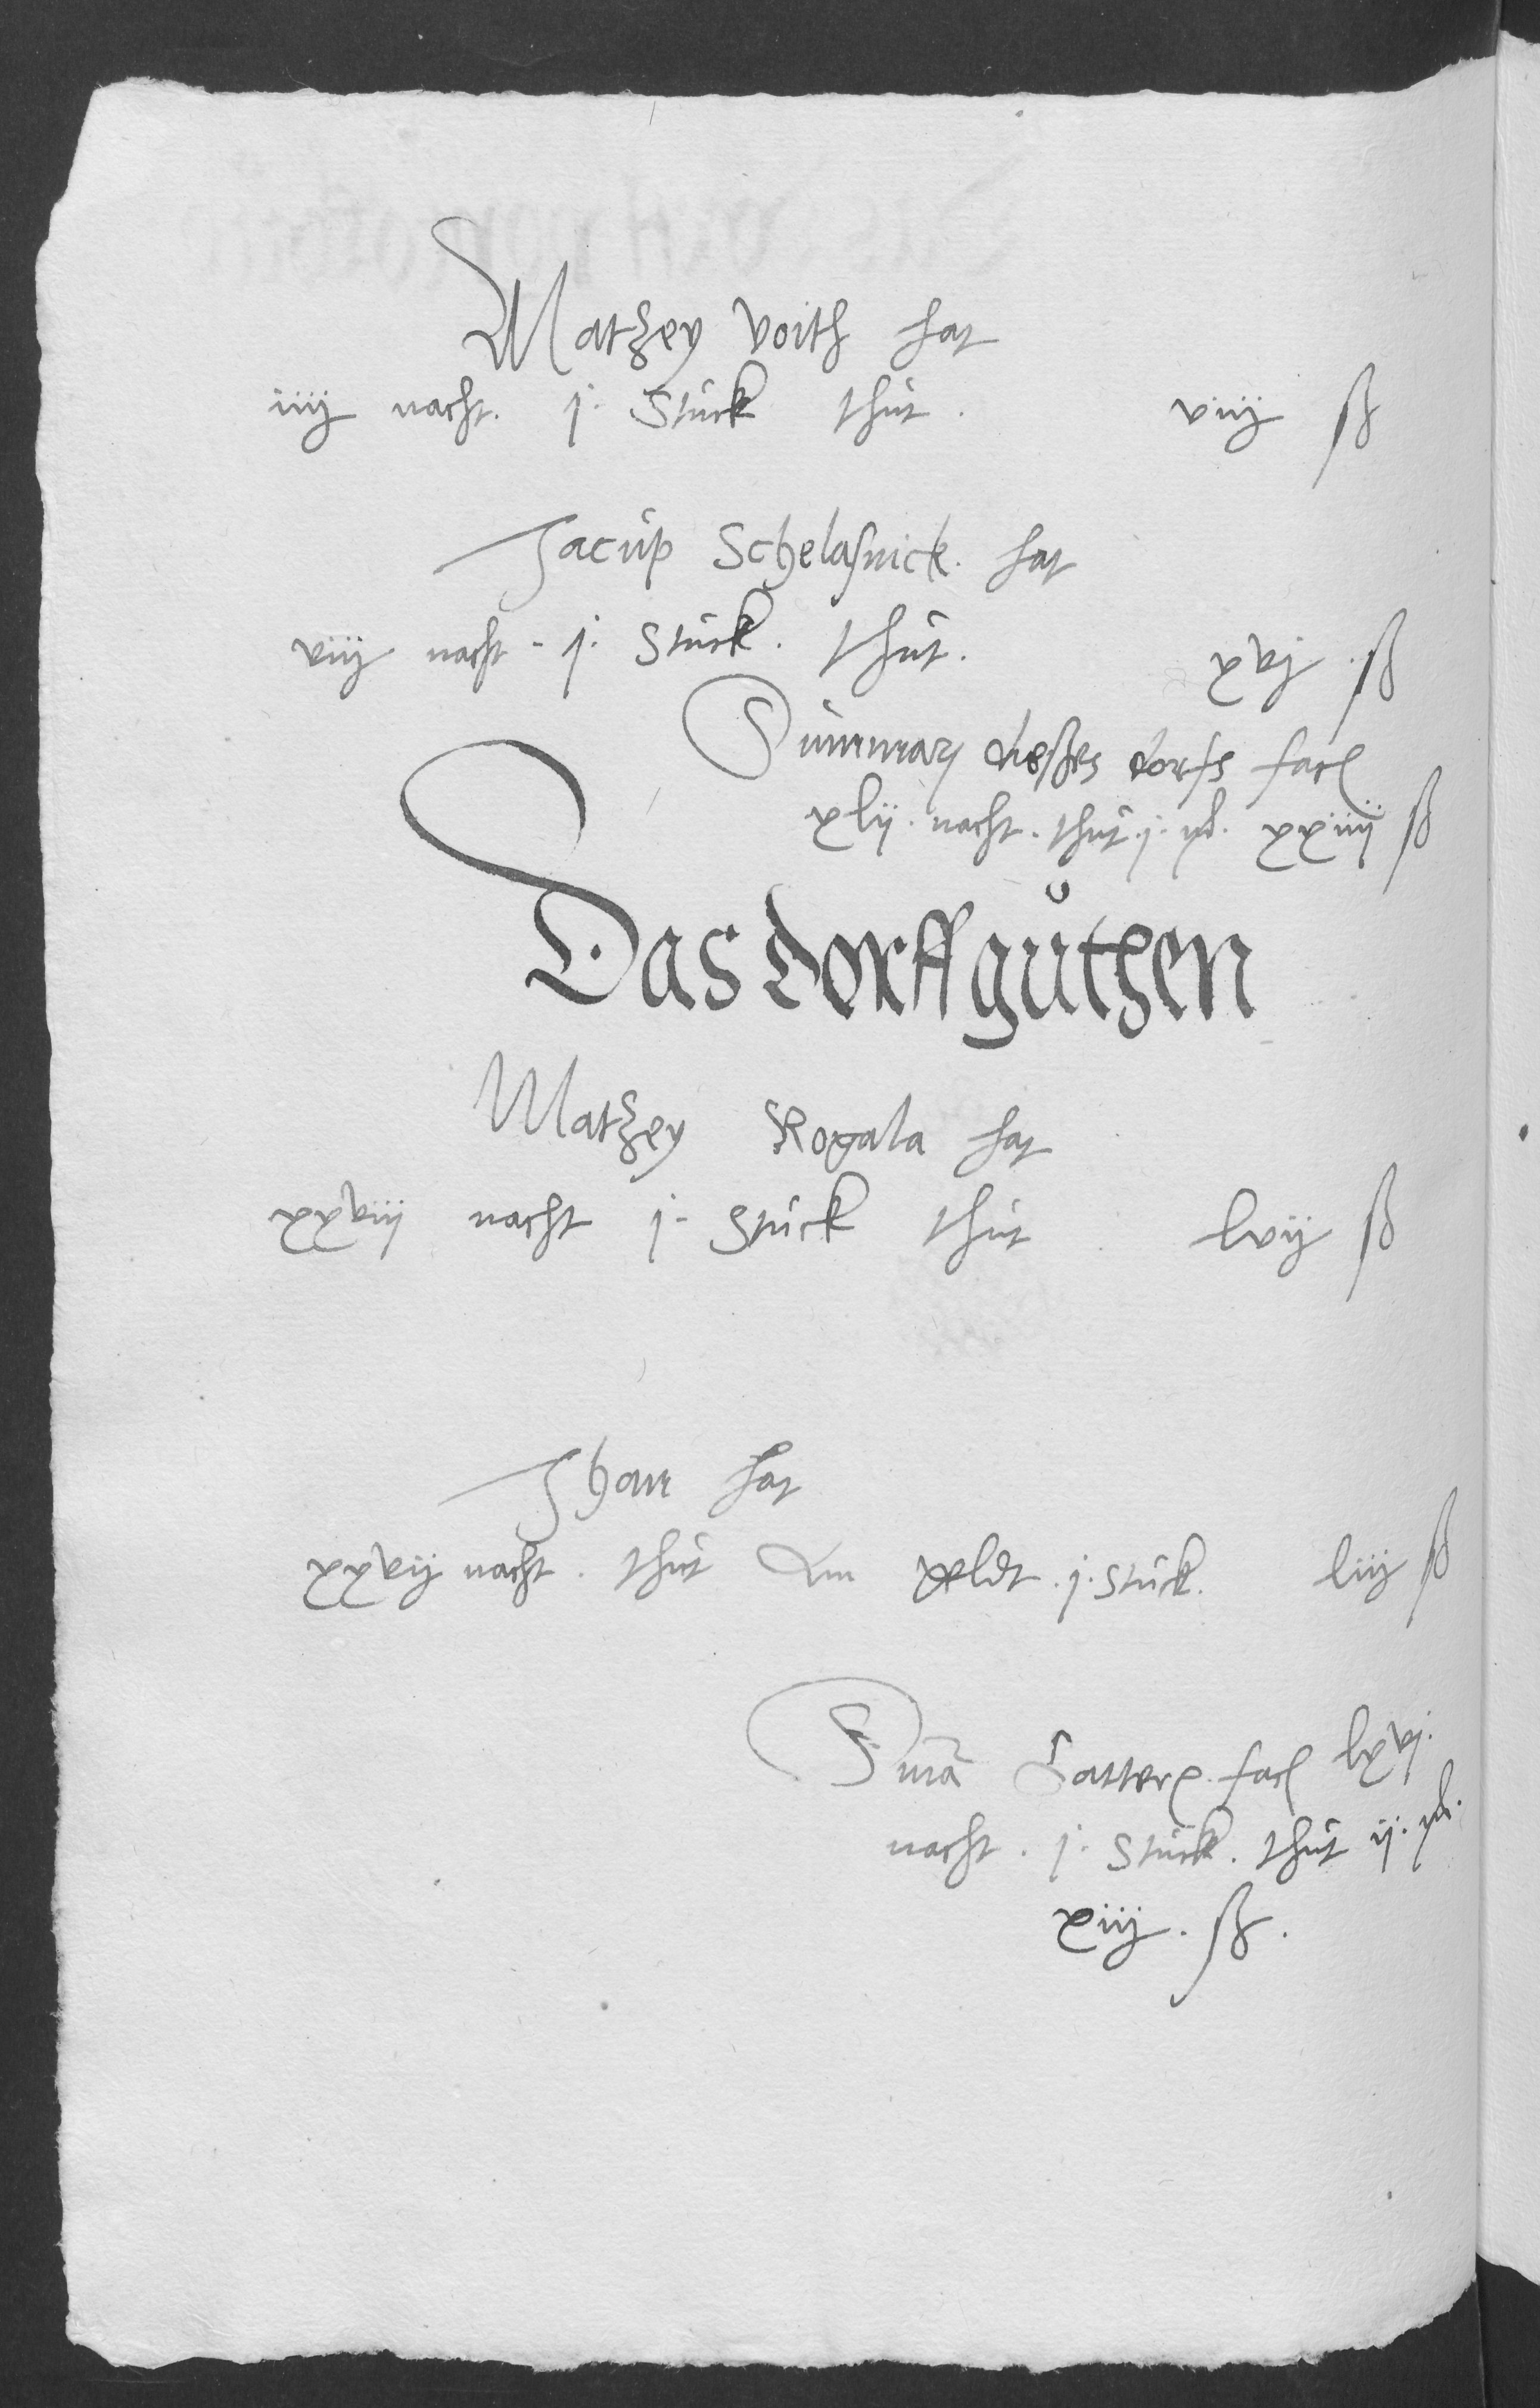 Matzey Voith hat
iiij nacht. j. Stuck thut. viij ß
Jacup Schelasnick. hat
viij nacht. j. Stuck. thut. xvj. ß
Summarum dieses dorfs fac[
xlij. nacht. thut. j. ß
Das dorff guthen
Matzey Rogala hat
xxviij nacht j. Stuck thut lvij ß
Jhan hat
xxvij nacht. thut j. Stuck. liij ß
Suma lxvj.
nacht. j. Stuck. thut ij.
xiij. ß.